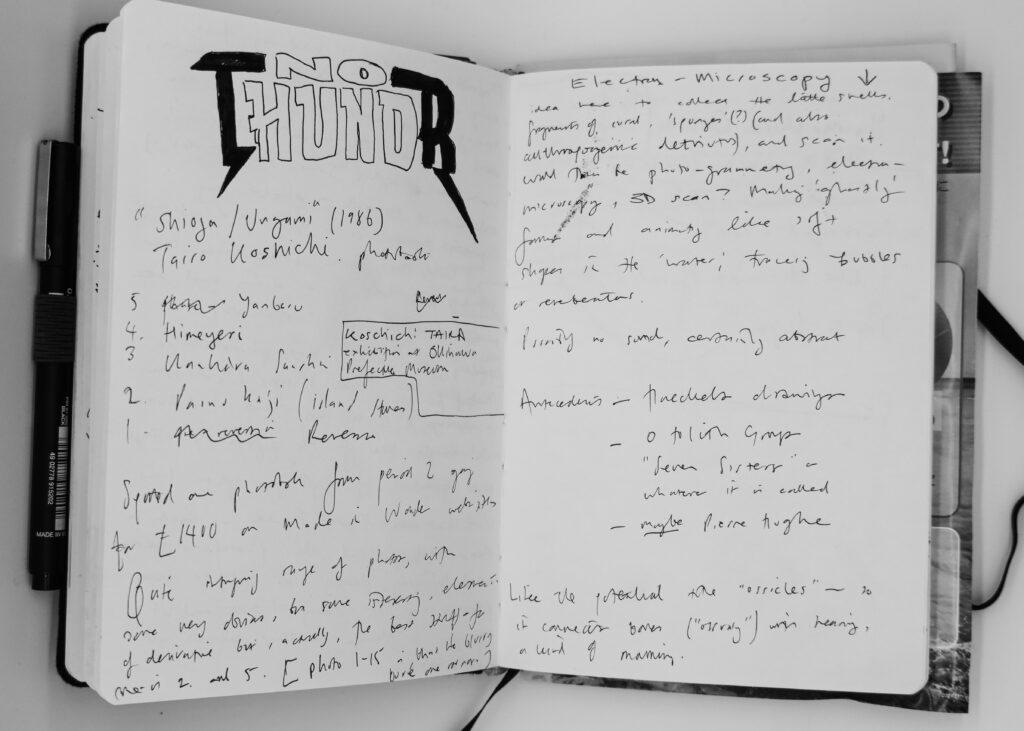 NO
THUNDR
"Shioya / Ungami" (1986)
Tairo Koshichi. photobook
5 Yanbaru
4. Himeyuri
3
2. Painukaji (island
1. Reversion
Koschichi TAIRA
exhibition at Okinawa
Prefecture Museum
Spotted one photobook from period 2 going
for £1400 on Made in Wonder website
Quite intriguing range of photos, with
some very obvious, but some interesting, elements
of derivative but, actually, the best stuff for
me is 2. and 5. [photo 1-15
Electron-Microscopy ↓
idea here to collect the little shells,
fragments of coral, 'sponges' (?) (and also
anthropogenic detritus), and scan it.
photo-grammetry, electron-
microscopy, 3D scan? Making 'ghostly'
forms and animating like soft
shapes in the 'water', tracing bubbles
or reverberations.
Possibly no sound, certainly abstract
Antecedents - Haeckels drawings
- Otolith Group
"Seven Sisters" or
whatever it is called
- maybe Pierre Hughe
Like the potential title "ossicles" - so
it connects bones ("ossuary") with hearing,
a kind of mourning.
49 02778 915202
MADE IN